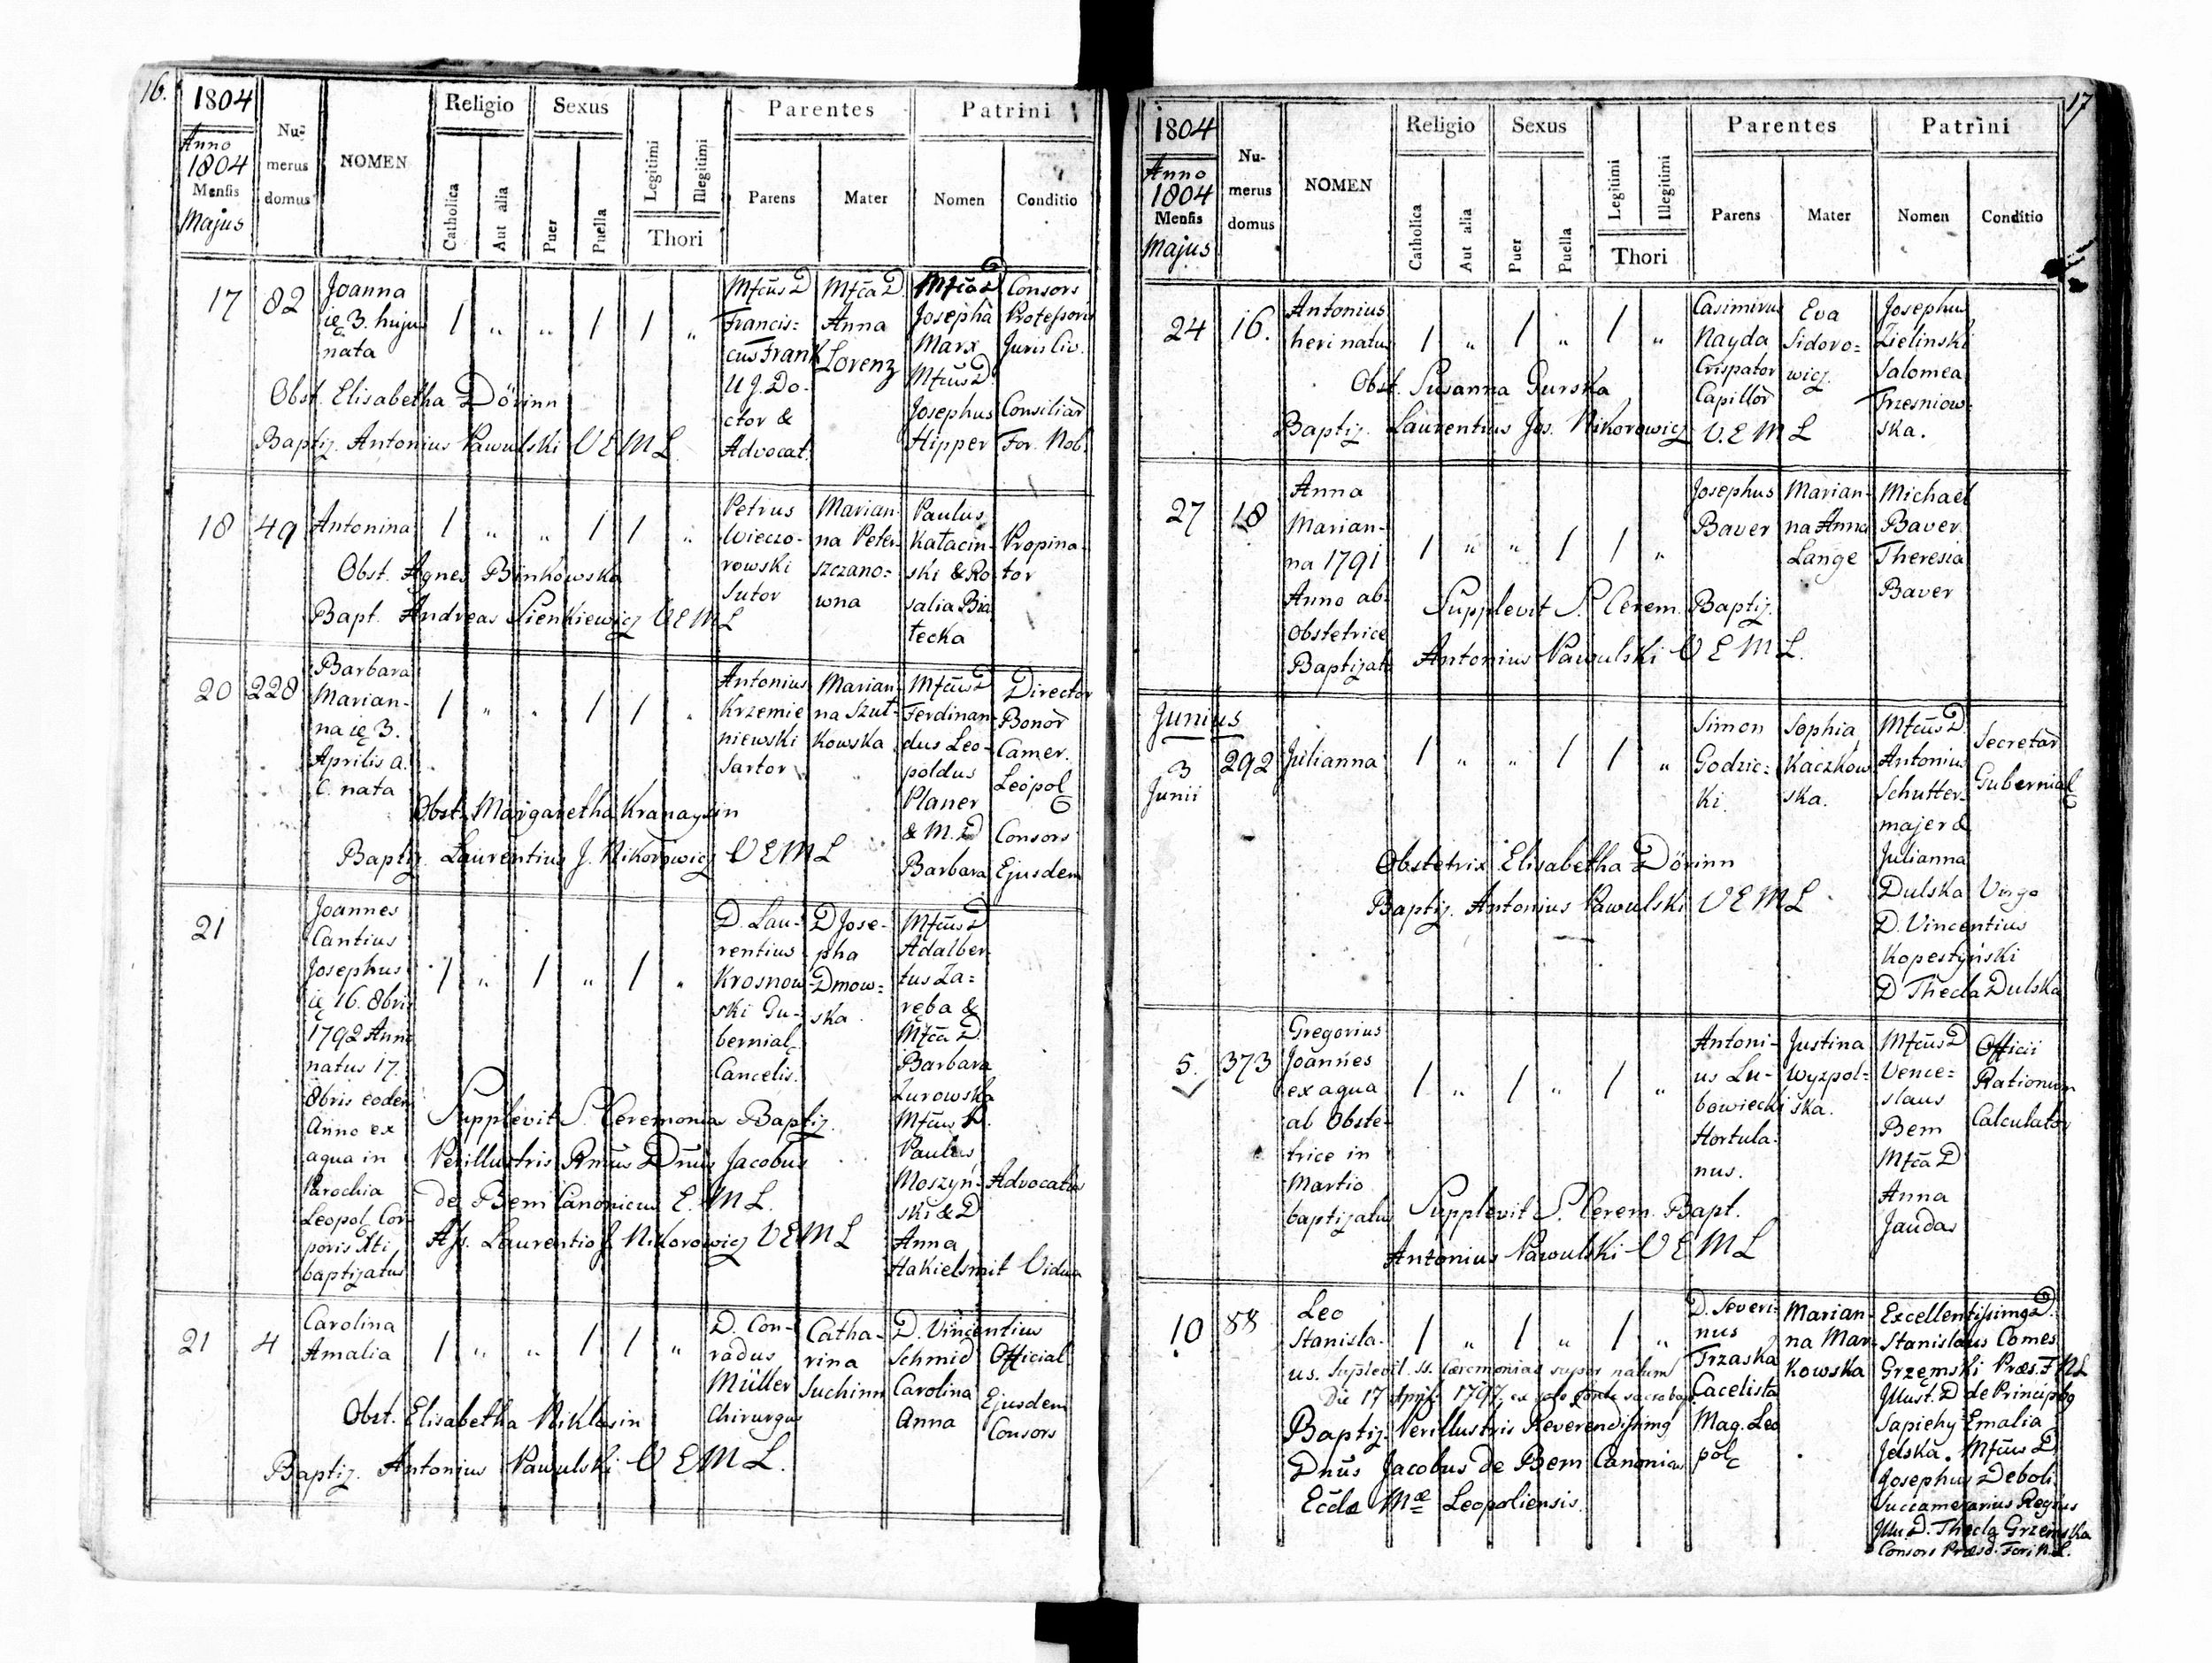 16.
1804
Anno
1804
Mensis
Majus
Nu-
merus
domus
NOMEN
Religio
Catholica
Aut alia
Sexus
Puer
Puella
Legitimi
Illegitimi
Thori
Parentes
Parens
Mater
Patrini
Nomen
Conditio
17 82
Joanna
ię 3. hujus
nata
/ " " / / "
Mfcus D
Francis=
cus Frank
U J. Do-
ctor &
Advocat.
Mfca D
Anna
Lorenz
Mfca D
Josepha
Marx
Mfcus D.
Josephus
Hipper
Consors
Professoris
Juris Civ.
Consiliar
For. Nob.
Obst. Elisabetha Dörinn
Baptiz. Antonius Pawulski V E M L
18 49
Antonina
/ " " / / "
Petrus
Wieczo-
rowski
Sutor
Marian-
na Peter-
szczano=
wna
Paulus
Katacin-
ski & Ro-
salia Bia
tecka
Propina-
tor
Obst. Agnes Binkowska
Bapt. Andreas Sienkiewicz V E M L
20 228
Barbara
Marian-
na ię 3.
Aprilis a.
C. nata
/ " " / / "
Antonius
Krzemie
niewski
Sartor
Marian-
na Szut-
kowska
Mfcus D
Ferdinan-
dus Leo-
poldus
Planer
& M. D
Barbara
Director
Bonor
Camer.
Leopol
Consors
Ejusdem
Obst. Margaretha Kranaysin
Baptiz. Laurentius J. Nikorowicz V E M L
21
Joannes
Cantius
Josephus
ię 16. 8bris
1792 Anno
natus 17.
8bris eodem
Anno ex
aqua in
Parochia
Leopol Cor-
poris Xti
baptizatus
/ " / " / "
D. Lau-
rentius
Krosnow-
ski Gu-
bernial
Cancelis.
D Jose-
pha
Dmow=
ska
Mfcus D
Adalber
tus Za=
ręba &
Mfca D
Barbara
Zurowska
Mfcus D.
Paulus
Moszyn-
ski & D
Anna
Hakielsmit Vidua
Advocatus
Supplevit S. Ceremonia Baptiz.
Perillustris Rmus Dnus Jacobus
de Bem Canonicus E. M L.
Ass. Laurentio J. Nikorowicz V E M L
21 4
Carolina
Amalia
/ " " / / "
D. Con-
radus
Müller
Chirurgus
Catha-
rina
Suchinn
D. Vincentius
Schmid
Carolina
Anna
Official.
Ejusdem
Consors
Obst. Elisabetha Niklasin
Baptiz. Antonius Pawulski V E M L.
17
1804
Anno
1804
Mensis
Majus
Nu-
merus
domus
NOMEN
Religio
Catholica
Aut alia
Sexus
Puer
Puella
Legitimi
Illegitimi
Thori
Parentes
Parens
Mater
Patrini
Nomen
Conditio
24 16.
Antonius
heri natus
/ " / " / "
Casimirus
Nayda
Crispator
Capillor
Eva
Sidoro=
wicz.
Josephus
Zielinski
Salomea
Trzesniow-
ska.
Obst. Susanna Gurska
Baptiz. Laurentius Jos. Nikorowicz V. E M L
27 18
Anna
Marian-
na 1791
Anno ab
Obstetrice
Baptizata
/ " " / / "
Josephus
Baver
Marian-
na Anna
Lange
Michael
Baver
Theresia
Baver
Supplevit S. Cerem. Baptiz.
Antonius Pawulski V E M L.
Junius
3
Junii
292
Julianna
/ " " / / "
Simon
Godzic=
ki.
Sophia
Kaczkow
ska.
Mfcus D
Antonius
Schutter-
majer &
Julianna
Dulska Virgo
D. Vincentius
Kopestyński
D Thecla Dulska
Secretar
Gubernial
Obstetrix Elisabetha Dörinn
Baptiz. Antonius Pawulski V E M L
5. 373
Gregorius
Joannes
ex aqua
ab Obste-
trice in
Martio
baptizatus
/ " / " / "
Antoni-
us Lu-
bowiecki
Hortula-
nus.
Justina
Wyzpol=
ska.
Mfcus D
Vence=
slaus
Bem
Mfca D
Anna
Jaudas
Officii
Rationum
Calculator
Supplevit S. Cerem. Bapt.
Antonius Pawulski V E M L
10 88
Leo
Stanisla-
us.
/ " / " / "
D. Severi-
nus
Trzaska
Cacelista
Mag. Leo
pol
Marian-
na Mar-
kowska
Excellentissimus D.
Stanislaus Comes
Grzemski Præs. F N L
Illust. D de Principibus
Sapiehy Emalia
Jelska. Mfcus D
Josephus Deboli
Succamerarius Regius
Illu D. Thecla Grzemska
Consors Præsd. Fori N. L.
Suplevit ss. Cæremonias super natum
Die 17 April. 1797, ex solo fonte sacro bap.
Baptiz. Perillustris Reverendissimus
Dnus Jacobus de Bem Canonicus
Eccla Mæ Leopoliensis.